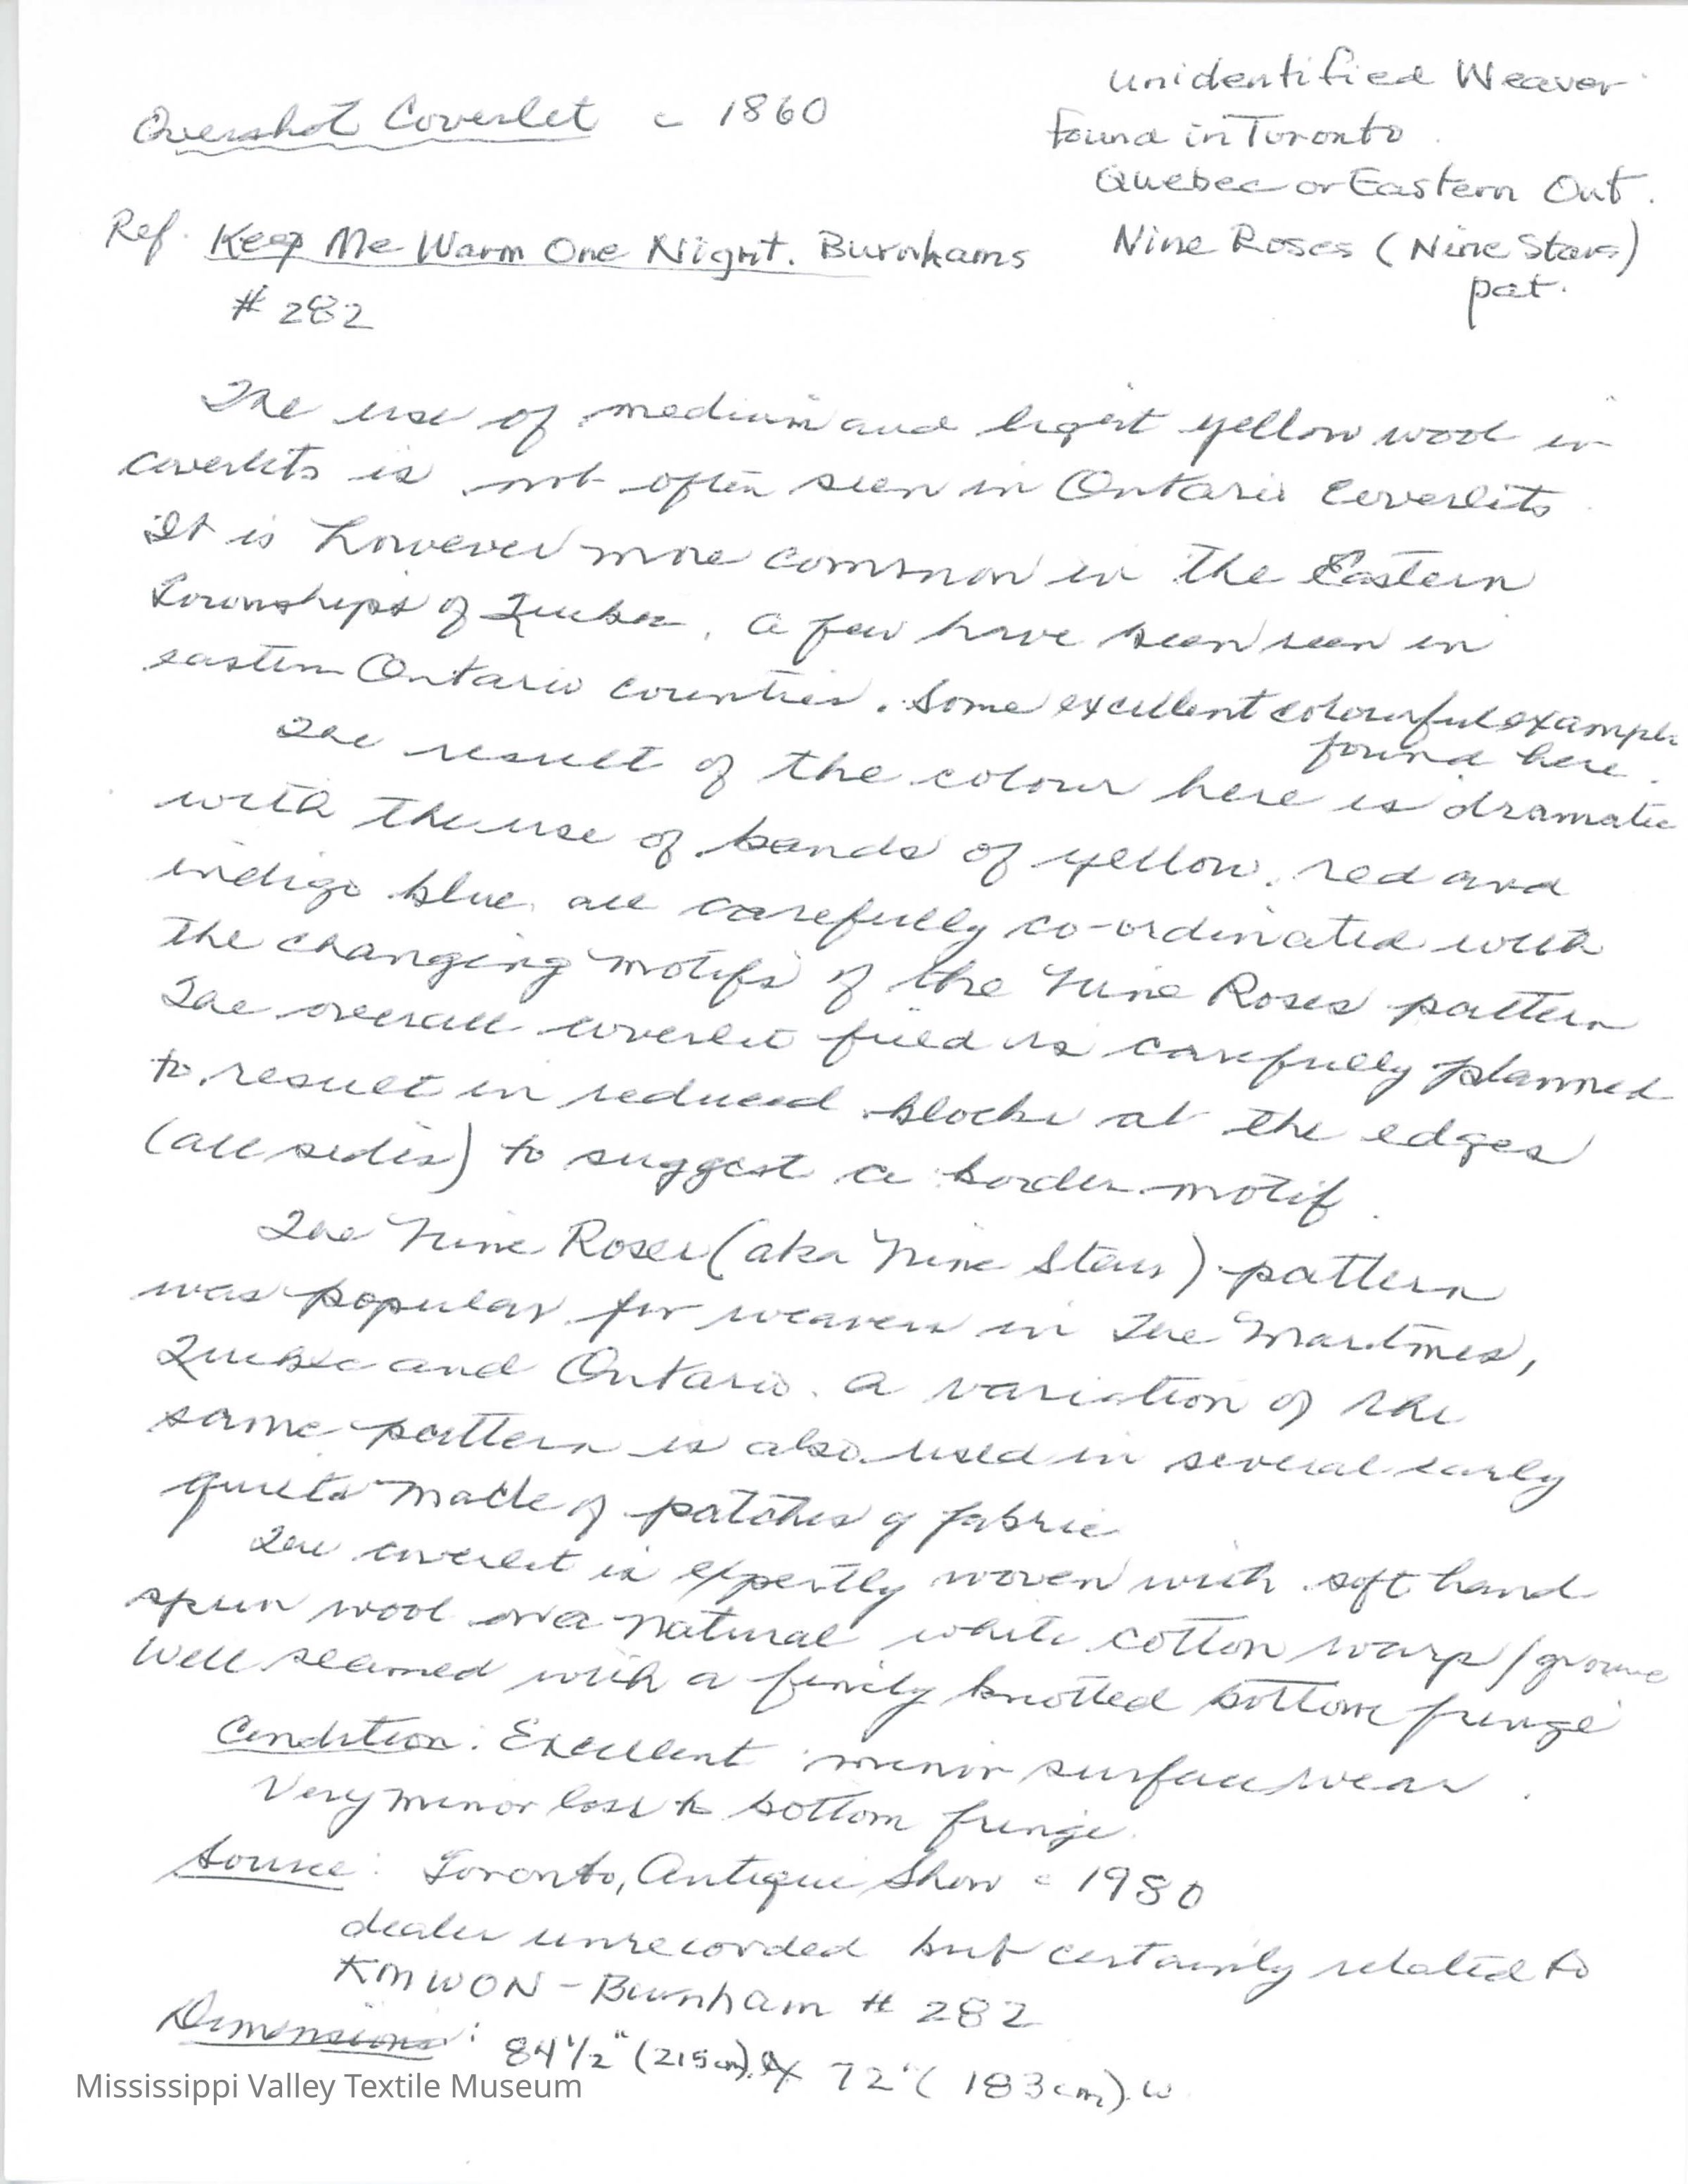 Overshot Coverlet c 1860
unidentified Weaver
Found in Toronto
Quebec or Eastern Ont.
Nine Roses (Nine Stars)
pat.
Ref. Keep Me Warm One Night. Burnhams
# 282
The use of medium and light yellow wool in
coverlets is not often seen in Ontario Coverlets.
It is however more common in the Eastern
Townships of Quebec. A few have been seen in
eastern Ontario counties. Some excellent colourful example
found here.
The result of the colour here is dramatic
with the use of bands of yellow, red and
indigo blue, all carefully co-ordinated with
the changing motifs of the Nine Roses pattern
The overall coverlet field is carefully planned
to result in reduced blocks at the edges
(all sides) to suggest a border motif.
The Nine Roses (aka Nine Stars) pattern
was popular for weavers in The Maritimes,
Quebec and Ontario. A variation of the
same pattern is also used in several early
quilts made of patches of fabric
The coverlet is expertly woven with soft hand
spun wool on a natural white cotton warp/ground
Well seamed with a finely knotted bottom fringe
Condition: Excellent minor surface wear.
Very minor loss to bottom fringe.
Source: Toronto, Antique Show c 1980
dealer unrecorded but certainly related to
KMWON - Burnham # 282
Dimensions: 84 1/2" (215 cm) x 72" (183 cm). w
Mississippi Valley Textile Museum